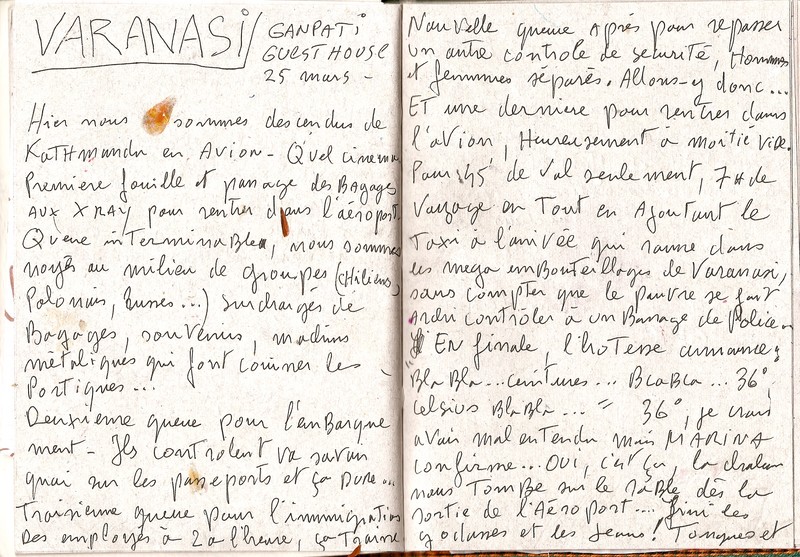 VARANASI/
GANPATI
GUEST HOUSE
25 mars -
Hier nous sommes descendus de
KATHmandu en Avion - Quel cinema
Première fouille et passage des Bagages
AUX XRAY pour rentrer dans l'aéroport.
Queue interminable, nous sommes
noyés au milieu de groupes (chiliens,
Polonais, Russes...) surchargés de
Bagages, souvenirs, moulins
métaliques qui font couiner les
Portiques...
Deuxième queue pour l'enbarque
ment - Ils contrôlent va savoir
quoi sur les passeports et ça Dure...
Troisième queue pour l'immigration
Des employés à 2 a l'heure, ça Traine
Nouvelle queue Après pour repasser
un autre controle de sécurité, Hommes
et femmes séparés. Allons-y donc...
Et une dernière pour rentrer dans
l'avion, Heureusement à moitié vide.
Pour 45' de Vol seulement, 7H de
Voyage en Tout en Ajoutant le
Taxi à l'arrivée qui rame dans
les mega emBouteillages de Varanasi,
sans compter que le pauvre se fait
contrôler à un Barrage de Police.
En finale, l'hotesse annonce:
"BlaBla... ceintures... BlaBla... 36°
Celsius BlaBla... " 36°, je crois
avoir mal entendu mais MARINA
confirme... OUI, c'est ça, la chaleur
nous TomBe sur le râBle dès la
sortie de l'Aéroport.... Fini les
et les Jeans! Tongues et